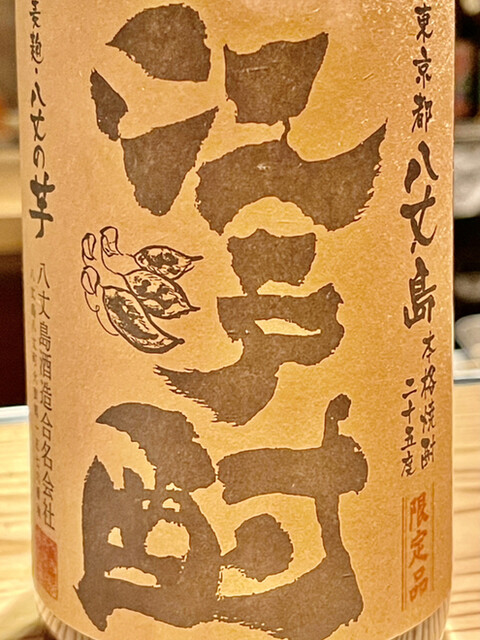 東京都 八丈島
本格焼酎
二十五度
限定品
江戸酎
麦麹・八丈の芋
八丈島酒造合名会社